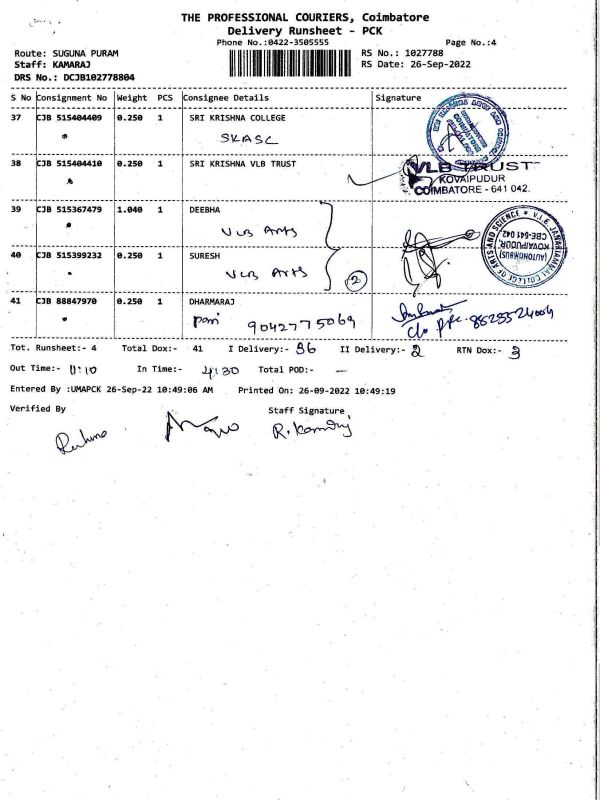 THE PROFESSIONAL COURIERS, Coimbatore
Delivery Runsheet - PCK
Phone No.:0422-3505555 Page No.:4
Route: SUGUNA PURAM RS No.: 1027788
Staff: KAMARAJ RS Date: 26-Sep-2022
DRS No.: DCJB102778804
S No Consignment No Weight PCS Consignee Details Signature
37 CJB 515404409 0.250 1 SRI KRISHNA COLLEGE
SKASC
38 CJB 515404410 0.250 1 SRI KRISHNA VLB TRUST
VLB TRUST
KOVAIPUDUR
COIMBATORE - 641 042.
39 CJB 515367479 1.040 1 DEEBHA
VLB Arts
40 CJB 515399232 0.250 1 SURESH
VLB Arts 2
V.L.B. JANAKIAMMAL COLLEGE OF ARTS AND SCIENCE
(AUTONOMOUS)
KOVAIPUDUR,
CBE-641 042
41 CJB 88847970 0.250 1 DHARMARAJ
9042775069
Tot. Runsheet:- 4 Total Dox:- 41 I Delivery:- 36 II Delivery:- 2 RTN Dox:- 3
Out Time:- 11:10 In Time:- 4:30 Total POD:- —
Entered By :UMAPCK 26-Sep-22 10:49:06 AM Printed On: 26-09-2022 10:49:19
Verified By Staff Signature
R. Kamaraj